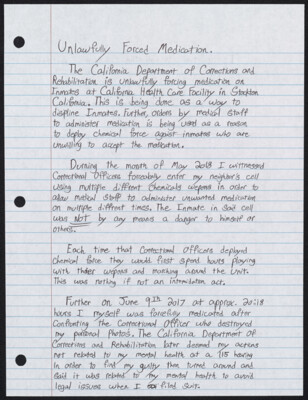 Unlawfully Forced Medication.
The California Department of Corrections and
Rehabilitation is unlawfully forcing medication on
Inmates at California Health Care Facility in Stockton
California. This is being done as a way to
displine Inmates. Further, orders by medical staff
to administer medication is being used as a reason
to deploy chemical force against inmates who are
unwilling to accept the medication.
During the month of May 2018 I witnessed
Correctional Officers forcefully enter my neighbor's cell
using multiple different chemicals weapons in order to
allow medical staff to administer unwanted medication
on multiple different times. The Inmate in said cell
was NOT by any means a danger to himself or
others.
Each time that Correctional Officers deployed
chemical force they would first spend hours playing
with their weapons and marching around the Unit.
This was nothing if not an intimidation act.
Further on June 9th 2017 at approx. 20:18
hours I myself was forcefully medicated after
Confronting the Correctional Officer who destroyed
my personal photos. The California Department of
Corrections and Rehabilitation later deemed my actions
not related to my mental health at a 115 hearing
in order to find my guilty then turned around and
said it was related to my mental health to avoid
legal issues when I filed suit.